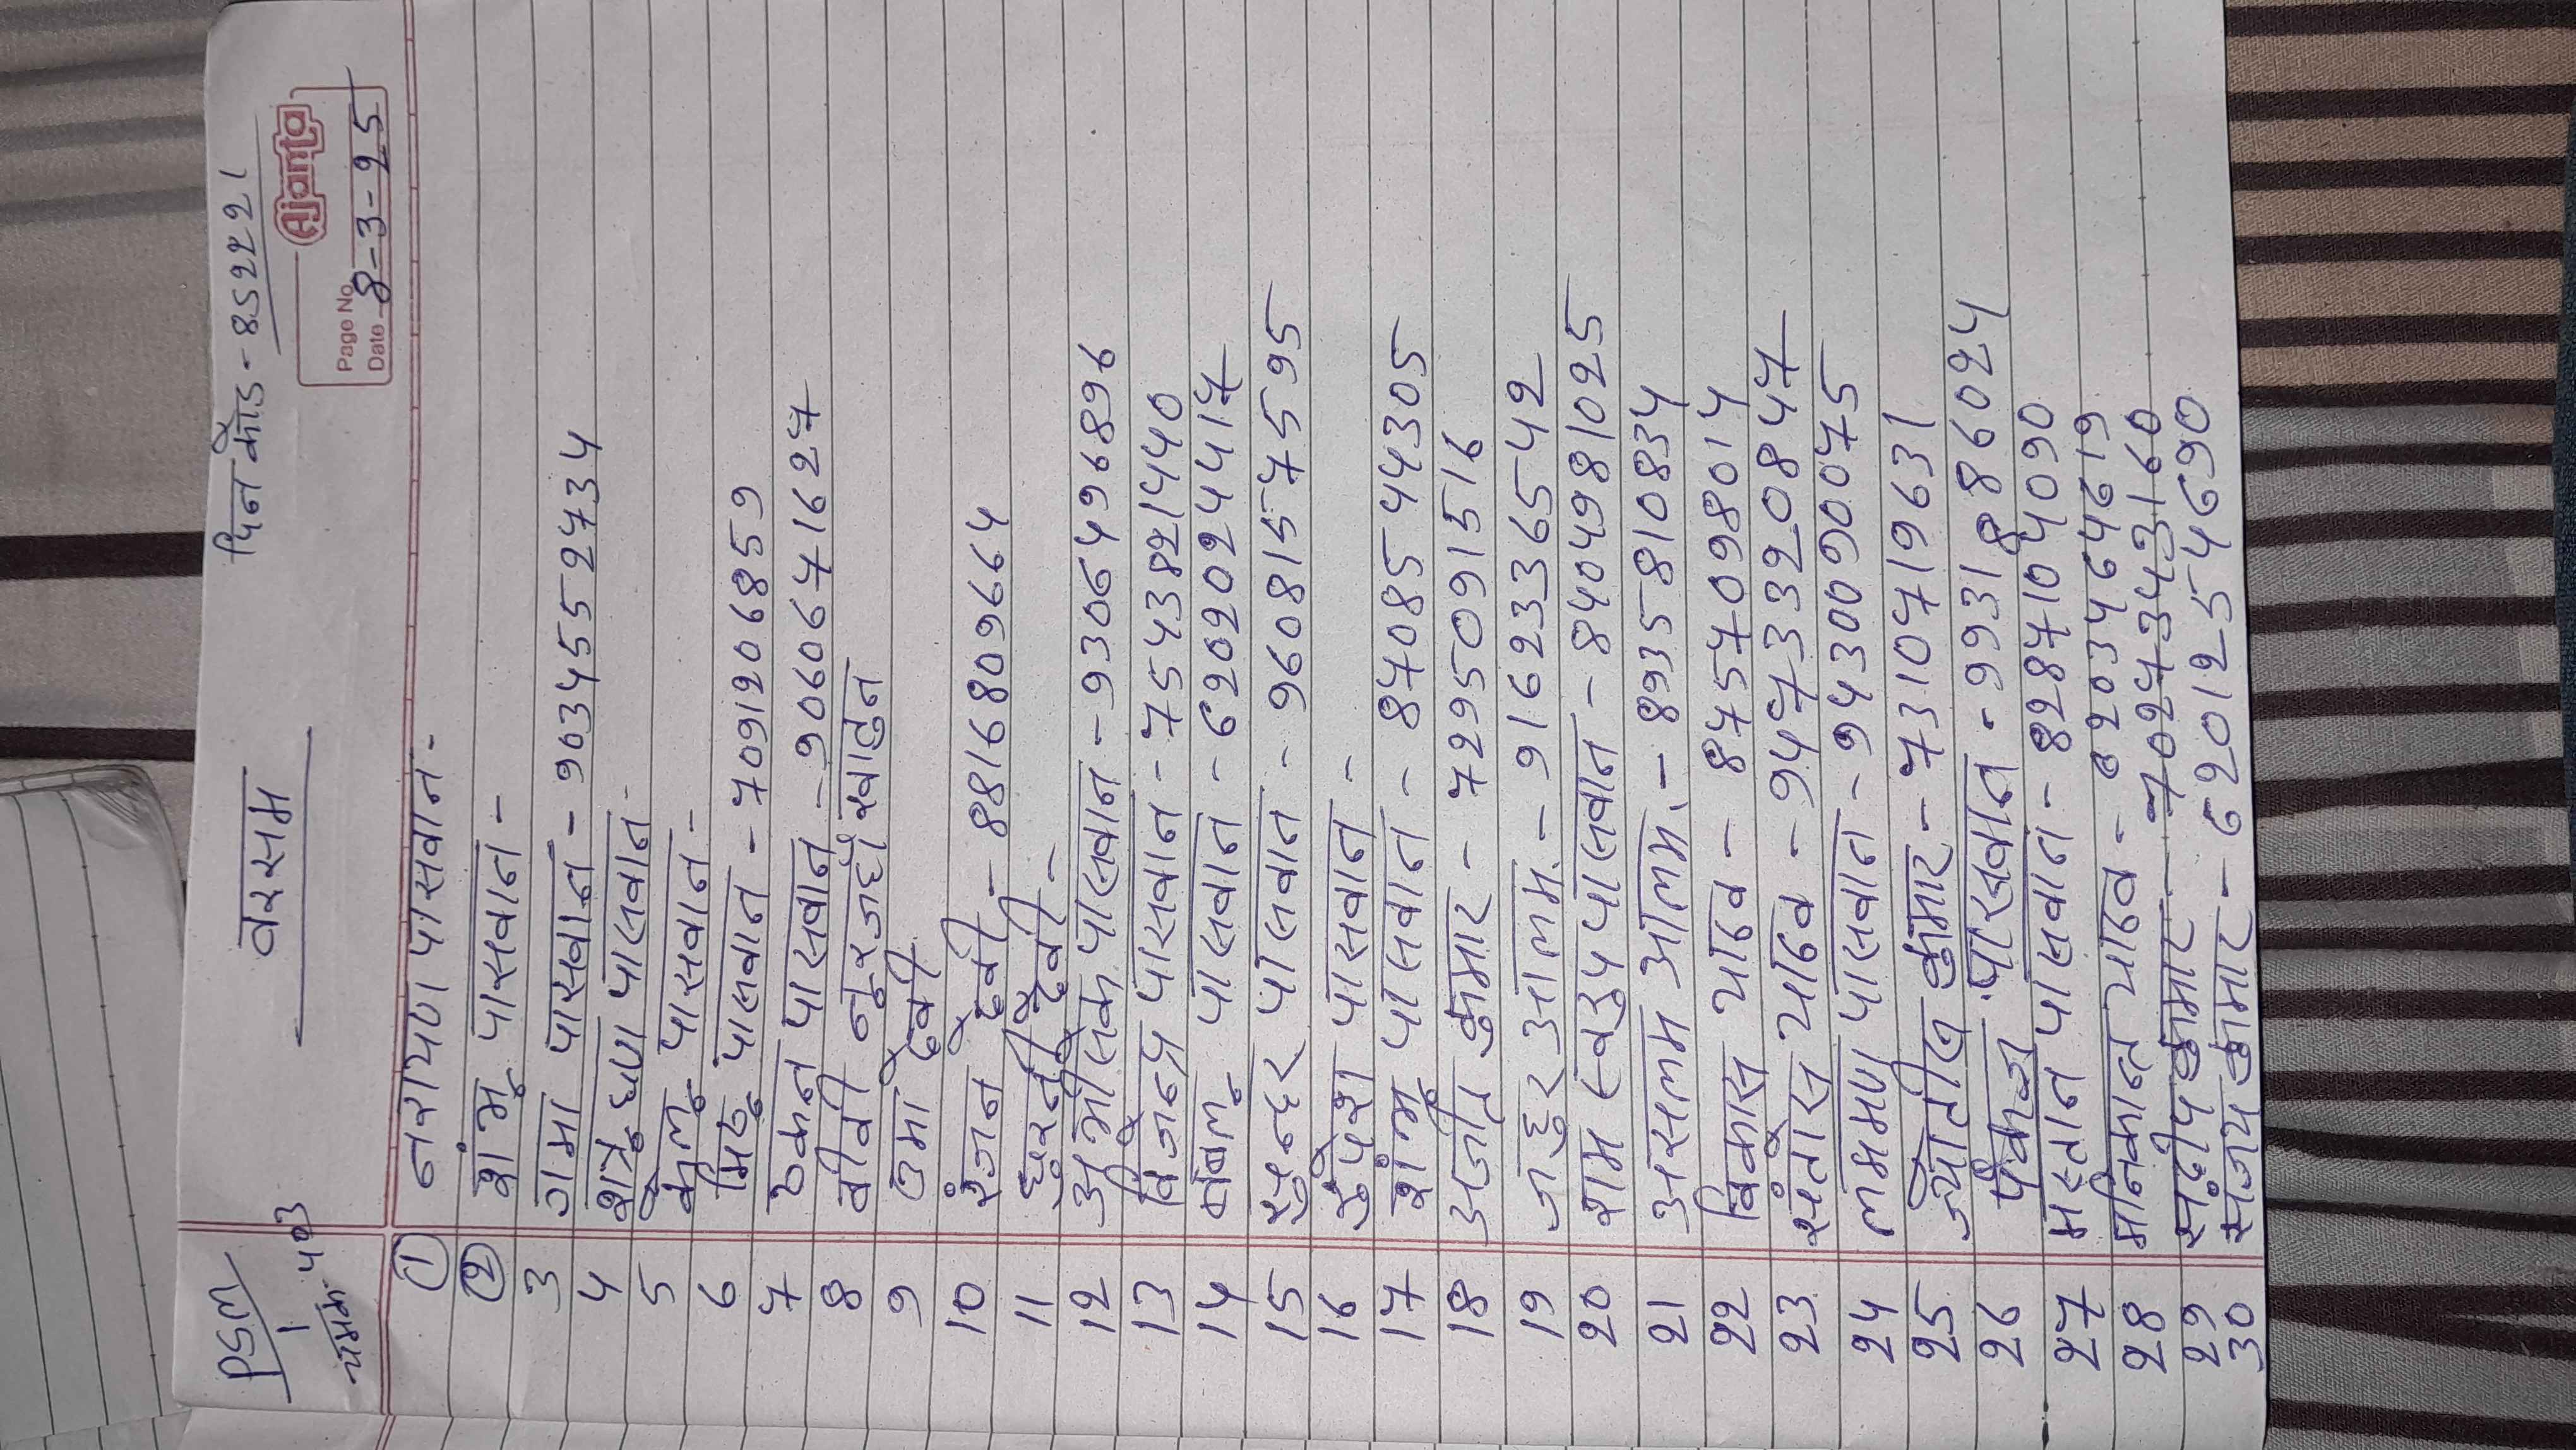 PSM
1
वरसम
पिन कोड - 852221
Ajanta
Page No.
Date 8-3-25
403
① नरायण पासवान -
② शंभू पासवान -
3 गमा पासवान - 9034552734
4 शत्रुधण पासवान -
5 केलू पासवान -
6 मिठू पासवान - 7091206859
7 ठकन पासवान - 9060671627
8 बीवी नूरजदी खातुन
9 उमा देवी
10 रंजन देवी - 8816809664
11 घुरनी देवी -
12 अभीसेक पासवान - 9306496896
13 विजेन्द्र पासवान - 7543821440
14 बबलू पासवान - 6202024417
15 सुन्दर पासवान - 9608157595
16 रुपेश पासवान -
17 शंभू पासवान - 8708544305
18 अजीत कुमार - 7295091516
19 जहुर आलम - 9162336542
20 राम स्वरुप पासवान - 8404981025
21 असलम आलम - 8935810834
22 विकास यादव - 8757098014
23 संतोस यादव - 9473320847
24 लक्ष्मण पासवान - 9430090075
25 ज्योतीस कुमार - 7310719631
26 पंकज पासवान - 9931886024
27 मस्तान पासवान - 8287104090
28 मनिकान्त यादव - 8203464619
29 संदीप कुमार - 7027343160
30 संजय कुमार - 6201254690